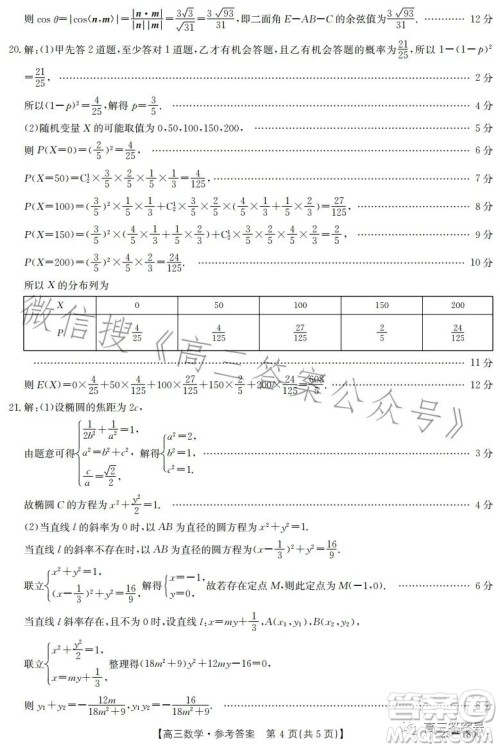 则 cos θ=|cos⟨n,m⟩|=|n·m|/(|n||m|)=3√3/√31=3√93/31,即二面角 E-AB-C 的余弦值为3√93/31. 12 分
20.解:(1)甲先答 2 道题,至少答对 1 道题,乙才有机会答题,且乙有机会答题的概率为21/25,所以 1-(1-p)²
=21/25, 2 分
所以(1-p)²=4/25,解得 p=3/5. 4 分
(2)随机变量 X 的可能取值为 0,50,100,150,200, 5 分
则 P(X=0)=(2/5)²=4/25, 6 分
P(X=50)=C½×3/5×2/5×1/5×1/3=4/125, 7 分
P(X=100)=(3/5)²×1/5×1/3+C½×3/5×2/5×(4/5×1/3+1/5×2/3)=27/125, 8 分
P(X=150)=(3/5)²×(4/5×1/3+1/5×2/3)+C½×3/5×2/5×4/5×2/3=2/5, 9 分
P(X=200)=(3/5)²×4/5×2/3=24/125. 10 分
所以 X 的分布列为
X 0 50 100 150 200
P 4/25 4/125 27/125 2/5 24/125
11 分
则 E(X)=0×4/25+50×4/125+100×27/125+150×2/5+200×24/125=608/5. 12 分
21.解:(1)设椭圆的焦距为 2c,
由题意可得{1/(2b²)+1/a²=1, a²=b²+c², c/a=√2/2, 解得{a²=2, b²=1, c=1, 3 分
故椭圆 C 的方程为 x²+y²/2=1. 4 分
(2)当直线 l 的斜率为 0 时,以 AB 为直径的圆方程为 x²+y²=1,
当直线 l 的斜率不存在时,以 AB 为直径的圆方程为(x-1/3)²+y²=16/9.
联立{x²+y²=1, (x-1/3)²+y²=16/9, 解得{x=-1, y=0, 故若存在定点 M,则此定点为 M(-1,0). 6 分
当直线 l 的斜率存在,且不为 0 时,设直线 l:x=my+1/3,A(x₁,y₁),B(x₂,y₂),
联立{x²+y²/2=1, x=my+1/3, 整理得(18m²+9)y²+12my-16=0,
则 y₁+y₂=-12m/(18m²+9),y₁y₂=-16/(18m²+9). 8 分
【高三数学·参考答案 第 4 页(共 5 页)】
微信搜《高三答案公众号》
高三答案号